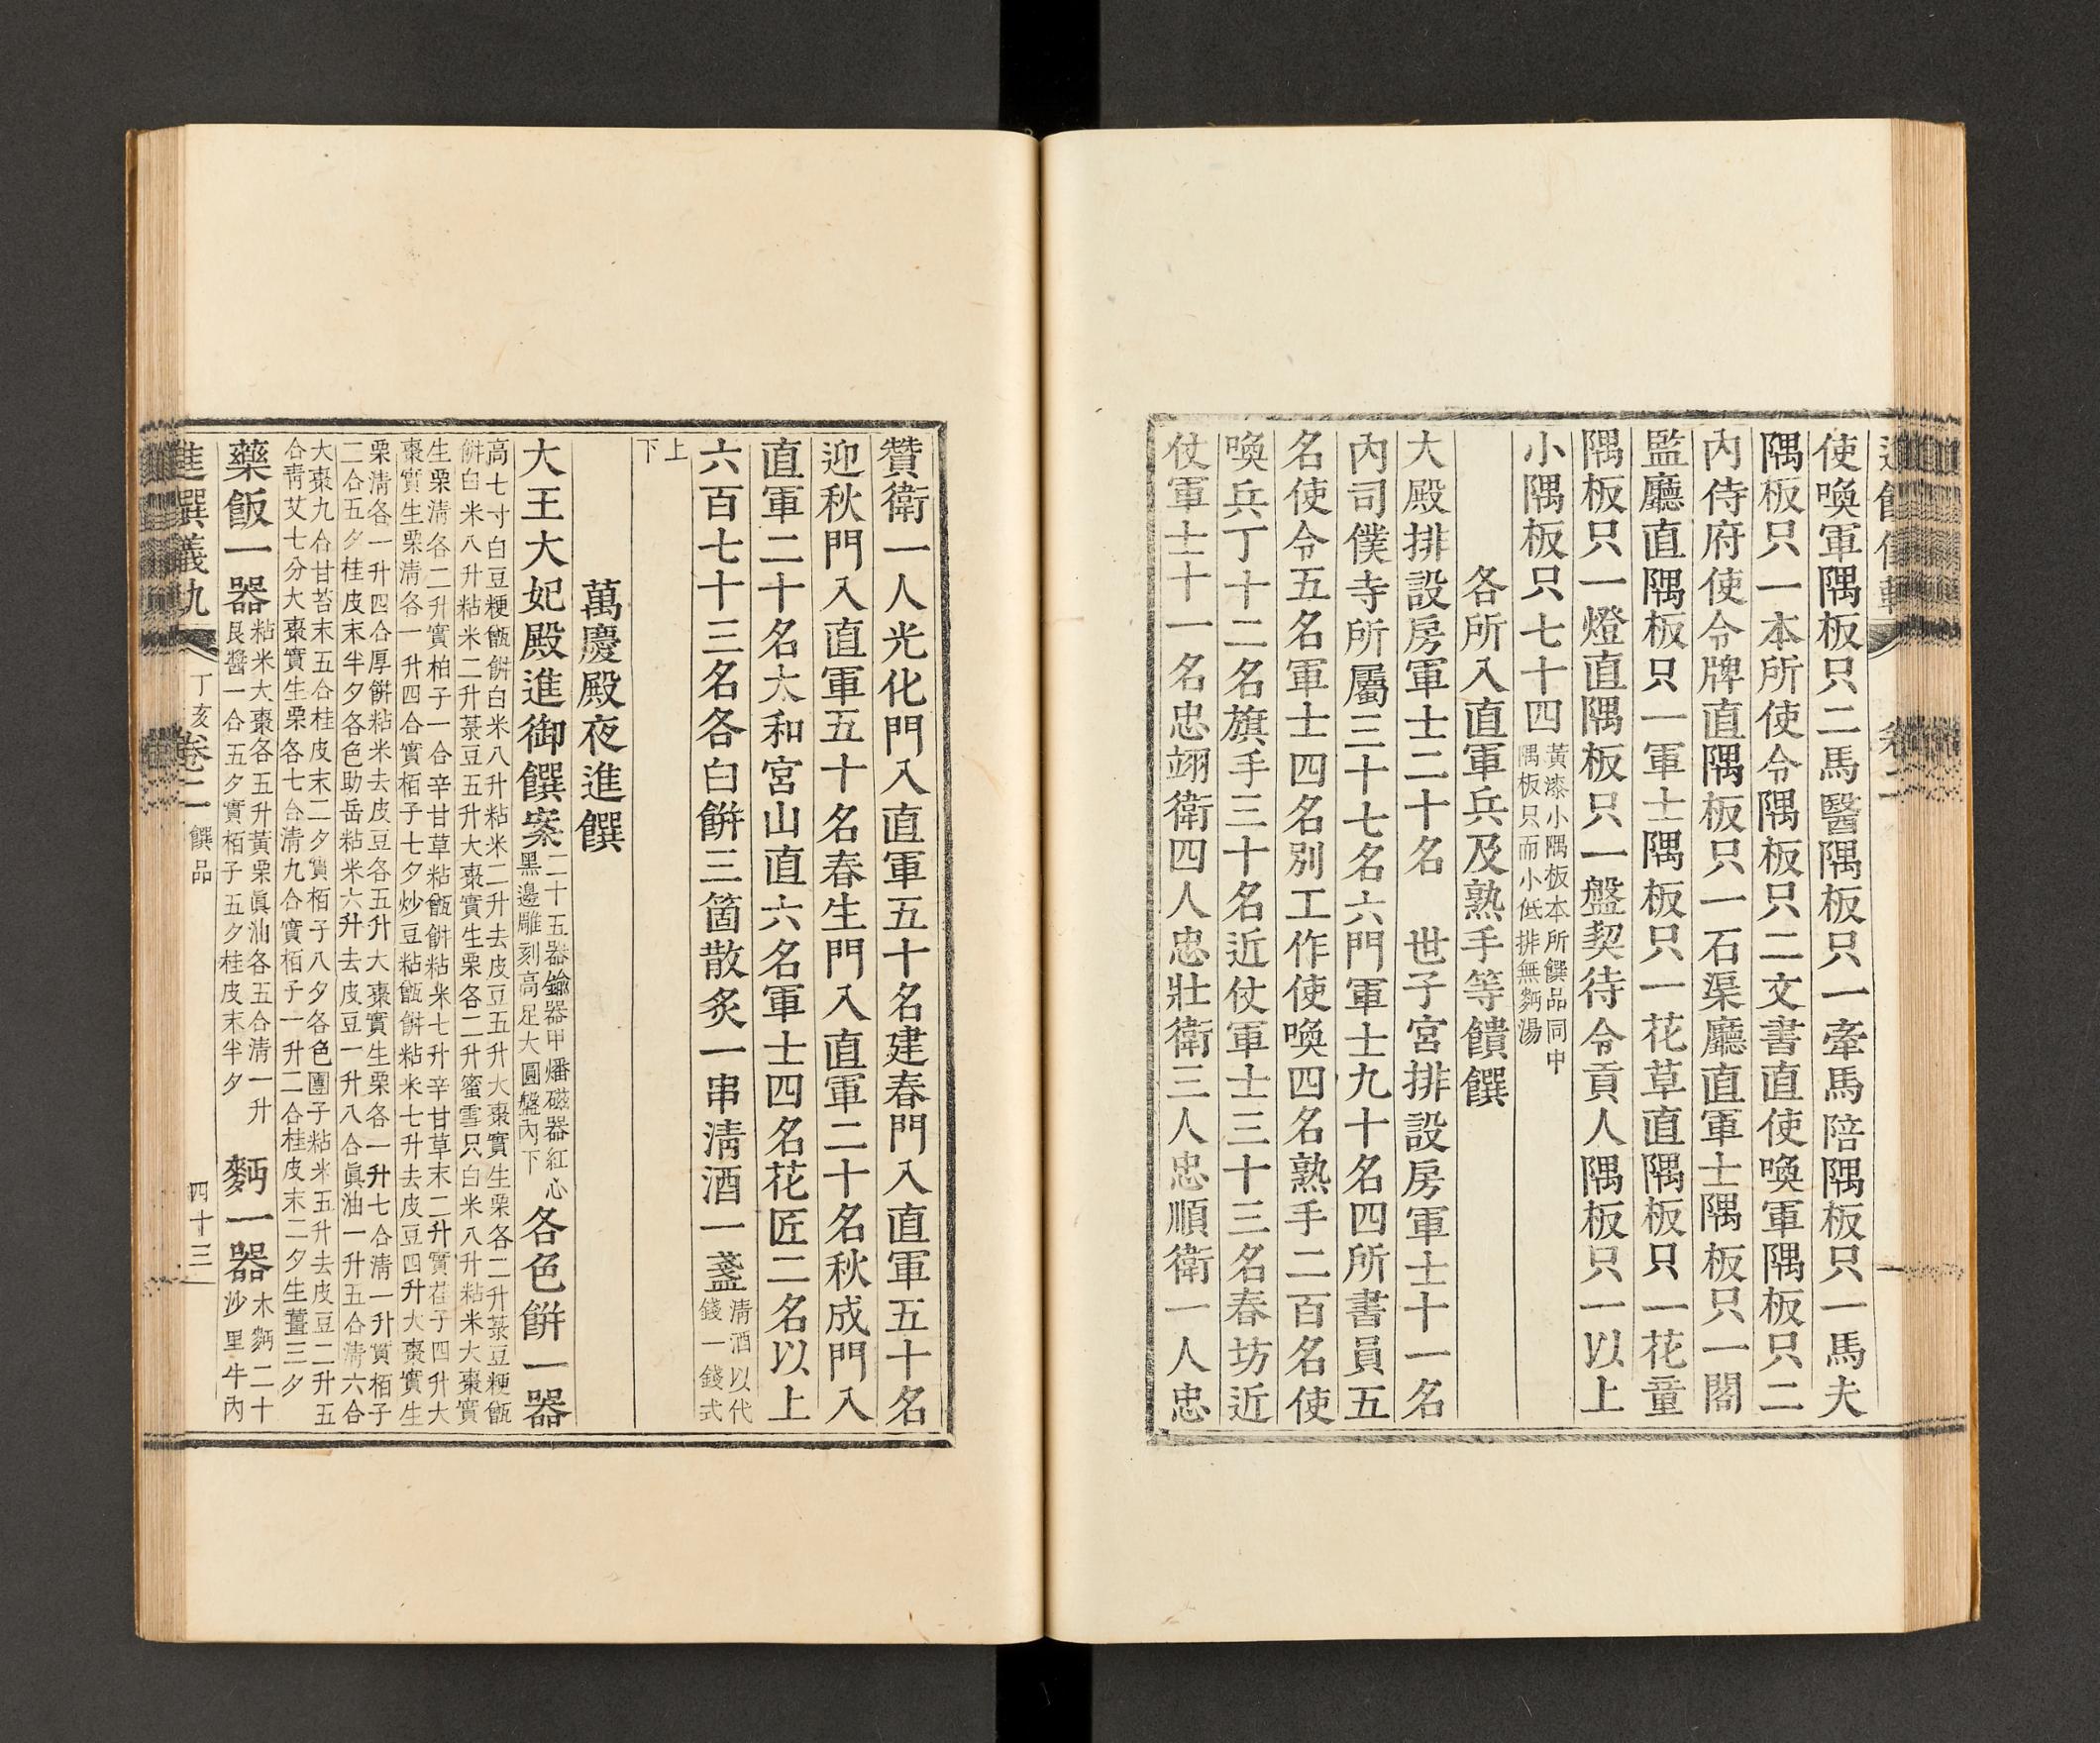 使喚軍隅板只二馬醫隅板只一牽馬陪隅板只一馬夫
隅板只一本所使令隅板只二文書直使喚軍隅板只二
內侍府使令牌直隅板只一石渠廳直軍士隅板只一閣
監廳直隅板只一軍士隅板只一花草直隅板只一花童
隅板只一燈直隅板只一盤契待令貢人隅板只一以上
小隅板只七十四黃漆小隅板本所饌品同中
隅板只而小低排無麪湯
各所入直軍兵及熟手等饋饌
大殿排設房軍士二十名 世子宮排設房軍士十一名
內司僕寺所屬三十七名六門軍士九十名四所書員五
名使令五名軍士四名別工作使喚四名熟手二百名使
喚兵丁十二名旗手三十名近仗軍士三十三名春坊近
仗軍士十一名忠翊衛四人忠壯衛三人忠順衛一人忠
贊衛一人光化門入直軍五十名建春門入直軍五十名
迎秋門入直軍五十名春生門入直軍二十名秋成門入
直軍二十名太和宮山直六名軍士四名花匠二名以上
六百七十三名各白餠三箇散炙一串淸酒一盞淸酒以代
錢一錢式
上
下
萬慶殿夜進饌
大王大妃殿進御饌案二十五器鍮器甲燔磁器紅心
黑邊雕刻高足大圓盤內下
各色餠一器
高七寸白豆粳甑餠白米八升粘米二升去皮豆五升大棗實生栗各二升菉豆粳甑
餠白米八升粘米二升菉豆五升大棗實生栗各二升蜜雪只白米八升粘米大棗實
生栗淸各二升實柏子一合辛甘草粘甑餠粘米七升辛甘草末二升實荏子四升大
棗實生栗淸各一升四合實栢子七夕炒豆粘甑餠粘米七升去皮豆四升大棗實生
栗淸各一升四合厚餠粘米去皮豆各五升大棗實生栗各一升七合淸一升實栢子
二合五夕桂皮末半夕各色助岳粘米六升去皮豆一升八合眞油一升五合淸六合
大棗九合甘苔末五合桂皮末二夕實栢子八夕各色團子粘米五升去皮豆二升五
合靑艾七分大棗實生栗各七合淸九合實栢子一升二合桂皮末二夕生薑三夕
藥飯一器粘米大棗各五升黃栗眞油各五合淸一升
艮醬一合五夕實栢子五夕桂皮末半夕
麪一器木麪二十
沙里牛內
進饌儀軌 丁亥 卷二 饌品 四十三